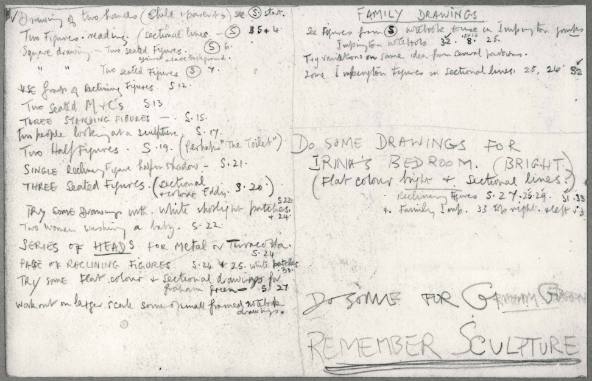 Drawing of two hands (child & parents) see S start.
Two Figures. reading. (sectional lines - S 3 & 4.
Square drawing - Two seated Figures. S 6.
" " Two seated Figures S 7.
USE front of Reclining Figures S 12.
Two Seated M & C's S 13
THREE STANDING FIGURES - S.15.
Two people looking at a sculpture S.17.
Two Half Figures. S.19. (perhaps "The Toilet")
SINGLE Reclining Figure half in shadow - S.21.
THREE Seated Figures. (sectional
S.20.)
Try some drawings with white patches. S.22
& 24
Two Women washing a baby. S.22
SERIES OF HEADS FOR Metal or Terracotta.
PAGE OF RECLINING FIGURES S.24 & 25. white patches
Try some Flat colour & sectional drawings for
Graham Greene - S 27
Work out on larger scale some of small framed notebook
drawings.
FAMILY DRAWINGS
See Figures from S notebook in Impington groups
Impington notebook 32. 8. 25.
Try variations on same idea from several positions.
Some Impington Figures in sectional lines. 25, 26 32
DO SOME DRAWINGS FOR
IRINA'S BEDROOM. (BRIGHT.
(Flat colour bright & Sectional lines.)
Reclining Figures S.27. 28.29. 31.33
& Family Imp. 33 top right. & left
DO SOME FOR GRAHAM GREENE
REMEMBER SCULPTURE